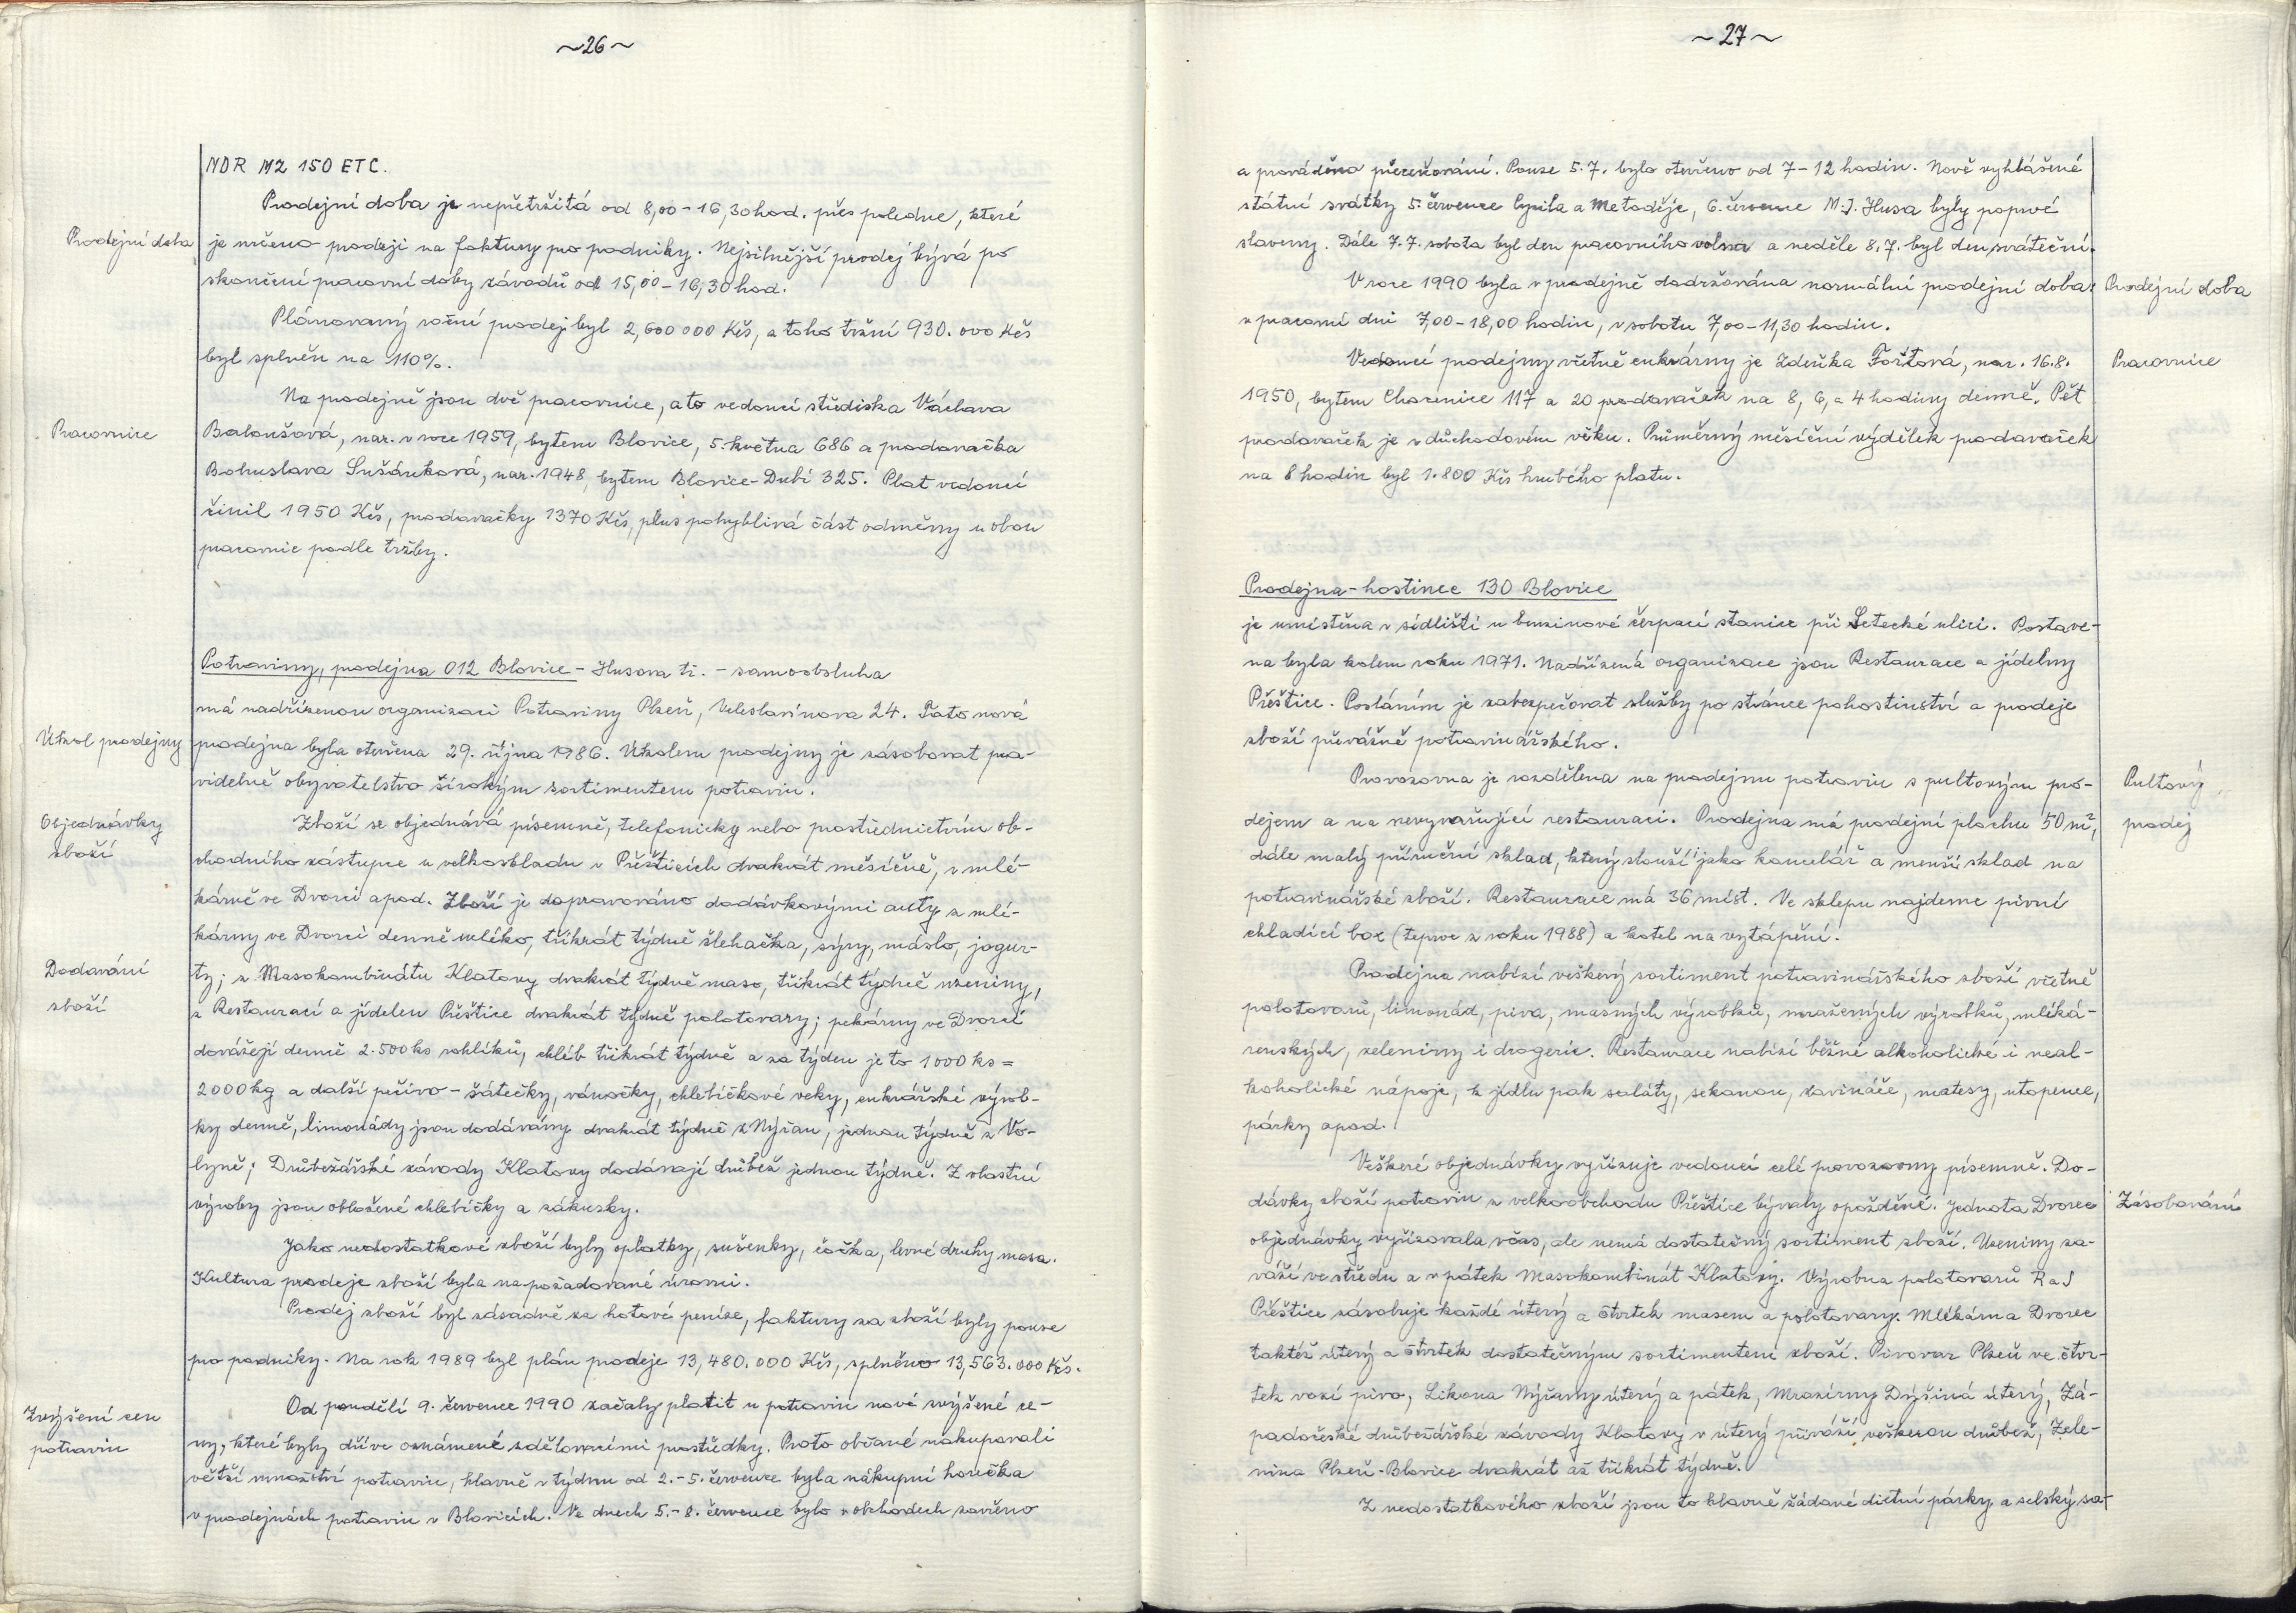 ~26~
NDR MZ 150 ETC.
Prodejní doba je nepřetržitá od 8,00-16,30 hod. přes poledne, které
Prodejní doba
je určeno prodeji na faktury pro podniky. Nejsilnější prodej bývá po
skončení pracovní doby závodů od 15,00-16,30 hod.
Plánovaný roční prodej byl 2,600 000 Kčs, a toho tržní 930.000 Kčs
byl splněn na 110%.
Na prodejně jsou dvě pracovnice, a to vedoucí střediska Václava
Pracovnice
Baloušová, nar. v roce 1959, bytem Blovice, 5. května 686 a prodavačka
Bohuslava Sušánková, nar. 1948, bytem Blovice-Dubí 325. Plat vedoucí
činil 1950 Kčs, prodavačky 1370 Kčs, plus pohyblivá část odměny u obou
pracovnic podle tržby.
Potraviny, prodejna 012 Blovice - Husova tř. - samoobsluha
má nadřízenou organizaci Potraviny Plzeň, Veleslavínova 24. Tato nová
Úkol prodejny
prodejna byla otevřena 29. října 1986. Úkolem prodejny je zásobovat pra-
videlně obyvatelstvo širokým sortimentem potravin.
Objednávky
zboží
Zboží se objednává písemně, telefonicky nebo prostřednictvím ob-
chodního zástupce u velkoskladu v Přešticích dvakrát měsíčně, v mlé-
kárně ve Dvorci apod. Zboží je dopravováno dodávkovými auty z mlé-
kárny ve Dvorci denně mléko, třikrát týdně šlehačka, sýry, máslo, jogur-
Dodavání
zboží
ty; z Masokombinátu Klatovy dvakrát týdně maso, třikrát týdně uzeniny,
z Restaurací a jídelen Přeštice dvakrát týdně polotovary; pekárny ve Dvorci
dovážejí denně 2.500 ks rohlíků, chléb třikrát týdně a za týden je to 1000 ks =
2000 kg a další pečivo - šátečky, vánočky, chlebíčkové veky, cukrářské výrob-
ky denně, limonády jsou dodávány dvakrát týdně z Nýřan, jednou týdně z Vo-
lyně; Drůbežářské závody Klatovy dodávají drůbež jednou týdně. Z vlastní
výroby jsou obložené chlebíčky a zákusky.
Jako nedostatkové zboží byly oplatky, sušenky, čočka, levné druhy masa.
Kultura prodeje zboží byla na požadované úrovni.
Prodej zboží byl zásadně za hotové peníze, faktury za zboží byly pouze
pro podniky. Na rok 1989 byl plán prodeje 13,480.000 Kčs, splněno 13,563.000 Kčs.
Zvýšení cen
potravin
Od pondělí 9. července 1990 začaly platit u potravin nové zvýšené ce-
ny, které byly dříve oznámené sdělovacími prostředky. Proto občané nakupovali
větší množství potravin, hlavně v týdnu od 2.-5. července byla nákupní horečka
v prodejnách potravin v Blovicích. Ve dnech 5.-8. července bylo v obchodech zavřeno
~27~
a prováděno přeceňování. Pouze 5.7. bylo otevřeno od 7-12 hodin. Nově vyhlášené
státní svátky 5. července Cyrila a Metoděje, 6. července M.J. Husa byly poprvé
slaveny. Dále 7.7. sobota byl den pracovního volna a neděle 8.7. byl den sváteční.
V roce 1990 byla v prodejně dodržována normální prodejní doba:
Prodejní doba
v pracovní dni 7,00-18,00 hodin, v sobotu 7,00-11,30 hodin.
Vedoucí prodejny včetně cukrárny je Zdeňka Foštová, nar. 16.8.
Pracovnice
1950, bytem Chocenice 117 a 20 prodavaček na 8, 6, a 4 hodiny denně. Pět
prodavaček je v důchodovém věku. Průměrný měsíční výdělek prodavaček
na 8 hodin byl 1.800 Kčs hrubého platu.
Prodejna-hostinec 130 Blovice
je umístěna v sídlišti u benzinové čerpací stanice při Letecké ulici. Postave-
na byla kolem roku 1971. Nadřízená organizace jsou Restaurace a jídelny
Přeštice. Posláním je zabezpečovat služby po stránce pohostinství a prodeje
zboží převážně potravinářského.
Provozovna je rozdělena na prodejnu potravin s pultovým pro-
Pultový
prodej
dejem a na nevyvařující restauraci. Prodejna má prodejní plochu 50 m²,
dále malý příruční sklad, který slouží i jako kancelář a menší sklad na
potravinářské zboží. Restaurace má 36 míst. Ve sklepu najdeme pivní
chladící box (teprve z roku 1988) a kotel na vytápění.
Prodejna nabízí veškerý sortiment potravinářského zboží včetně
polotovarů, limonád, piva, masných výrobků, mražených výrobků, mléká-
renských, zeleniny i drogerie. Restaurace nabízí běžné alkoholické i neal-
koholické nápoje, k jídlu pak saláty, sekanou, zavináče, matesy, utopence,
párky apod.
Veškeré objednávky vyřizuje vedoucí celé provozovny písemně. Do-
dávky zboží potravin z velkoobchodu Přeštice bývaly opožděné. Jednota Dvorec
Zásobování
objednávky vyřizovala včas, ale nemá dostatečný sortiment zboží. Uzeniny za-
váží ve středu a v pátek Masokombinát Klatovy. Výrobna polotovarů RaJ
Přeštice zásobuje každé úterý a čtvrtek masem a polotovary. Mlékárna Dvorec
taktéž úterý a čtvrtek dostatečným sortimentem zboží. Pivovar Plzeň ve čtvr-
tek vozí pivo, Likona Nýřany úterý a pátek, Mrazírny Dýšina úterý, Zá-
padočeské drůbežářské závody Klatovy v úterý přiváží veškerou drůbež, Zele-
nina Plzeň-Blovice dvakrát až třikrát týdně.
Z nedostatkového zboží jsou to hlavně žádané dietní párky a selský sa-